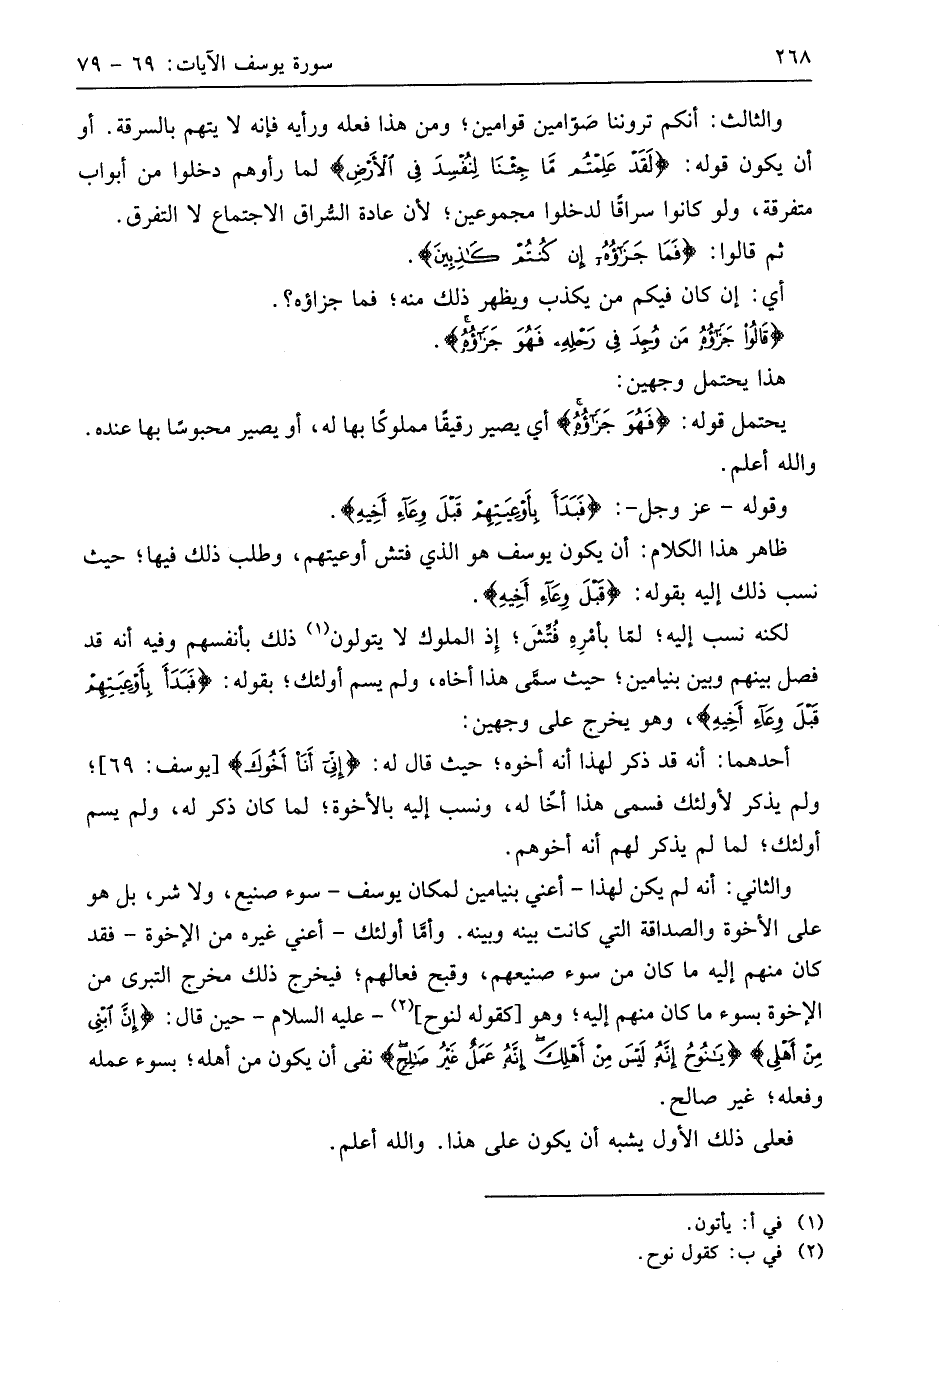 ٢٦٨
سورة يوسف الآيات: ٦٩ - ٧٩
والثالث: أنكم تروننا صَوّامين قوامين؛ ومن هذا فعله ورأيه فإنه لا يتهم بالسرقة. أو
أن يكون قوله: ﴿لَقَدْ عَلِمْتُم مَّا جِئْنَا لِنُفْسِدَ فِي ٱلْأَرْضِ﴾ لما رأوهم دخلوا من أبواب
متفرقة، ولو كانوا سراقًا لدخلوا مجموعين؛ لأن عادة السُّراق الاجتماع لا التفرق.
ثم قالوا: ﴿فَمَا جَزَٰٓؤُهُۥٓ إِن كُنتُمْ كَٰذِبِينَ﴾.
أي: إن كان فيكم من يكذب ويظهر ذلك منه؛ فما جزاؤه؟.
﴿قَالُوا۟ جَزَٰٓؤُهُۥ مَن وُجِدَ فِي رَحْلِهِۦ فَهُوَ جَزَٰٓؤُهُۥۚ﴾.
هذا يحتمل وجهين:
يحتمل قوله: ﴿فَهُوَ جَزَٰٓؤُهُۥۚ﴾ أي يصير رقيقًا مملوكًا بها له، أو يصير محبوسًا بها عنده.
والله أعلم.
وقوله - عز وجل-: ﴿فَبَدَأَ بِأَوْعِيَتِهِمْ قَبْلَ وِعَآءِ أَخِيهِ﴾.
ظاهر هذا الكلام: أن يكون يوسف هو الذي فتش أوعيتهم، وطلب ذلك فيها؛ حيث
نسب ذلك إليه بقوله: ﴿قَبْلَ وِعَآءِ أَخِيهِ﴾.
لكنه نسب إليه؛ لمّا بأمْرِهِ فُتِّشَ؛ إذ الملوك لا يتولون(١) ذلك بأنفسهم وفيه أنه قد
فصل بينهم وبين بنيامين؛ حيث سمَّى هذا أخاه، ولم يسم أولئك؛ بقوله: ﴿فَبَدَأَ بِأَوْعِيَتِهِمْ
قَبْلَ وِعَآءِ أَخِيهِ﴾، وهو يخرج على وجهين:
أحدهما: أنه قد ذكر لهذا أنه أخوه؛ حيث قال له: ﴿إِنِّيٓ أَنَا۠ أَخُوكَ﴾ [يوسف: ٦٩]؛
ولم يذكر لأولئك فسمى هذا أخًا له، ونسب إليه بالأخوة؛ لما كان ذكر له، ولم يسم
أولئك؛ لما لم يذكر لهم أنه أخوهم.
والثاني: أنه لم يكن لهذا - أعني بنيامين لمكان يوسف - سوء صنيع، ولا شر، بل هو
على الأخوة والصداقة التي كانت بينه وبينه. وأمَّا أولئك - أعني غيره من الإخوة - فقد
كان منهم إليه ما كان من سوء صنيعهم، وقبح فعالهم؛ فيخرج ذلك مخرج التبرى من
الإخوة بسوء ما كان منهم إليه؛ وهو [كقوله لنوح](٢) - عليه السلام - حين قال: ﴿إِنَّ ٱبْنِي
مِنْ أَهْلِي﴾ ﴿يَٰنُوحُ إِنَّهُۥ لَيْسَ مِنْ أَهْلِكَۖ إِنَّهُۥ عَمَلٌ غَيْرُ صَٰلِحٍۖ﴾ نفى أن يكون من أهله؛ بسوء عمله
وفعله؛ غير صالح.
فعلى ذلك الأول يشبه أن يكون على هذا. والله أعلم.
(١) في أ: يأتون.
(٢) في ب: كقول نوح.